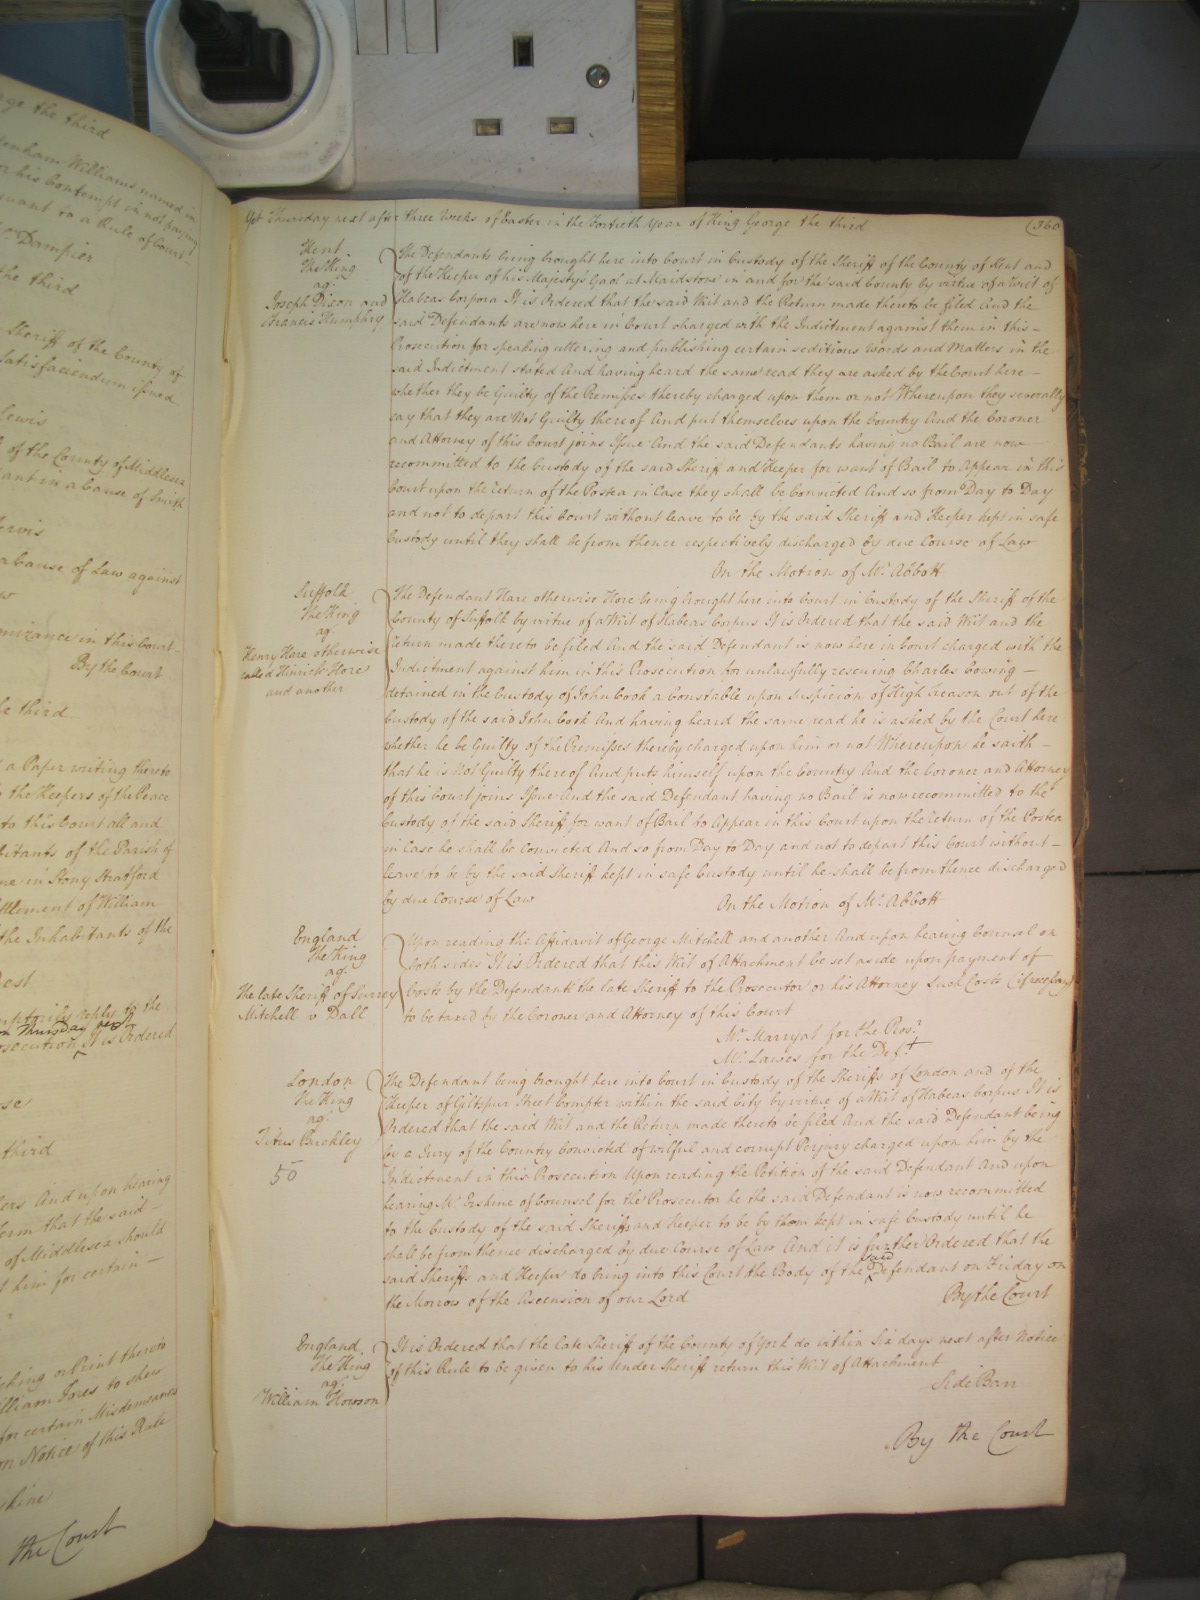 age the third
enham Williams named in
or his Contempt in not paying
suant to a Rule of Court
Mr Dampier
the third
Sheriff of the County of
Satisfaciendum issued
Lewis
of the County of Middlesex
ant in a Cause of Smith
ervis
a Cause of Law against
nizance in this Court
By the Court
he third
a Paper writing thereto
the Keepers of the Peace
to this Court all and
bitants of the Parish of
ne in Stony Stratford
ttlement of William
the Inhabitants of the
est
mptorily reply to the
on Thursday next
osecution It is Ordered
se
third
ers And upon hearing
Term that the said
of Middlesex should
t him for certain
thing or Print thereto
illiam Fores to shew
for certain Misdemeanors
on Notice of this Rule
skine
the Court
Yet Thursday next after three Weeks of Easter in the Fortieth Year of King George the third
(360
Kent
The King
agt
Joseph Dixon and
Francis Humphry
The Defendants being brought here into Court in Custody of the Sheriff of the County of Kent and
of the Keeper of his Majesty's Gaol at Maidstone in and for the said County by virtue of a Writ of
Habeas Corpora It is Ordered that the said Writ and the Return made thereto be filed And the
said Defendants are now here in Court charged with the Indictment against them in this
Prosecution for speaking uttering and publishing certain seditious Words and Matters in the
said Indictment stated And having heard the same read they are asked by the Court here
whether they be Guilty of the Premisses thereby charged upon them or not Whereupon they severally
say that they are Not Guilty thereof And put themselves upon the Country And the Coroner
and Attorney of this Court joins Issue And the said Defendants having no Bail are now
recommitted to the Custody of the said Sheriff and Keeper for want of Bail to Appear in this
Court upon the return of the Postea in Case they shall be Convicted And so from Day to Day
and not to depart this Court without leave to be by the said Sheriff and Keeper kept in safe
Custody until they shall be from thence respectively discharged by due Course of Law
On the Motion of Mr. Abbott
Suffolk
The King
agt
Henry Hare otherwise
called Hinrick Hore
and another
The Defendant Hare otherwise Hore being brought here into Court in Custody of the Sheriff of the
County of Suffolk by virtue of a Writ of Habeas Corpus It is Ordered that the said Writ and the
Return made thereto be filed And the said Defendant is now here in Court charged with the
Indictment against him in this Prosecution for unlawfully rescuing Charles Gowing
detained in the Custody of John Cook a Constable upon Suspicion of High Treason out of the
Custody of the said John Cook And having heard the same read he is asked by the Court here
whether he be Guilty of the Premisses thereby charged upon him or not Whereupon he saith
that he is Not Guilty thereof And puts himself upon the Country And the Coroner and Attorney
of this Court joins Issue And the said Defendant having no Bail is now recommitted to the
Custody of the said Sheriff for want of Bail to Appear in this Court upon the return of the Postea
in Case he shall be Convicted And so from Day to Day and not to depart this Court without
leave to be by the said Sheriff kept in safe Custody until he shall be from thence discharged
by due Course of Law
On the Motion of Mr. Abbott
England
The King
agt
The late Sheriff of Surrey
Mitchell v Dall
Upon reading the Affidavit of George Mitchell and another And upon hearing Counsel on
both sides It is Ordered that this Writ of Attachment be set aside upon payment of
Costs by the Defendant the late Sheriff to the Prosecutor or his Attorney Such Costs
to be taxed by the Coroner and Attorney of this Court
Mr. Marryat for the Prosr
Mr. Lawes for the Deft
London
The King
agt
Titus Buckley
50
The Defendant being brought here into Court in Custody of the Sheriffs of London and of the
Keeper of Giltspur Street Compter within the said City by virtue of a Writ of Habeas Corpus It is
Ordered that the said Writ and the Return made thereto be filed And the said Defendant being
by a Jury of the Country Convicted of wilful and corrupt Perjury charged upon him by the
Indictment in this Prosecution Upon reading the Petition of the said Defendant And upon
hearing Mr. Erskine of Counsel for the Prosecutor he the said Defendant is now recommitted
to the Custody of the said Sheriffs and Keeper to be by them kept in safe Custody until he
shall be from thence discharged by due Course of Law And it is further Ordered that the
said Sheriffs and Keeper do bring into this Court the Body of the said Defendant on Friday on
the Morrow of the Ascension of our Lord
By the Court
England
The King
agt
William Howson
It is Ordered that the late Sheriff of the County of York do within Six days next after Notice
of this Rule to be given to his Under Sheriff return this Writ of Attachment
Side Barr
By the Court